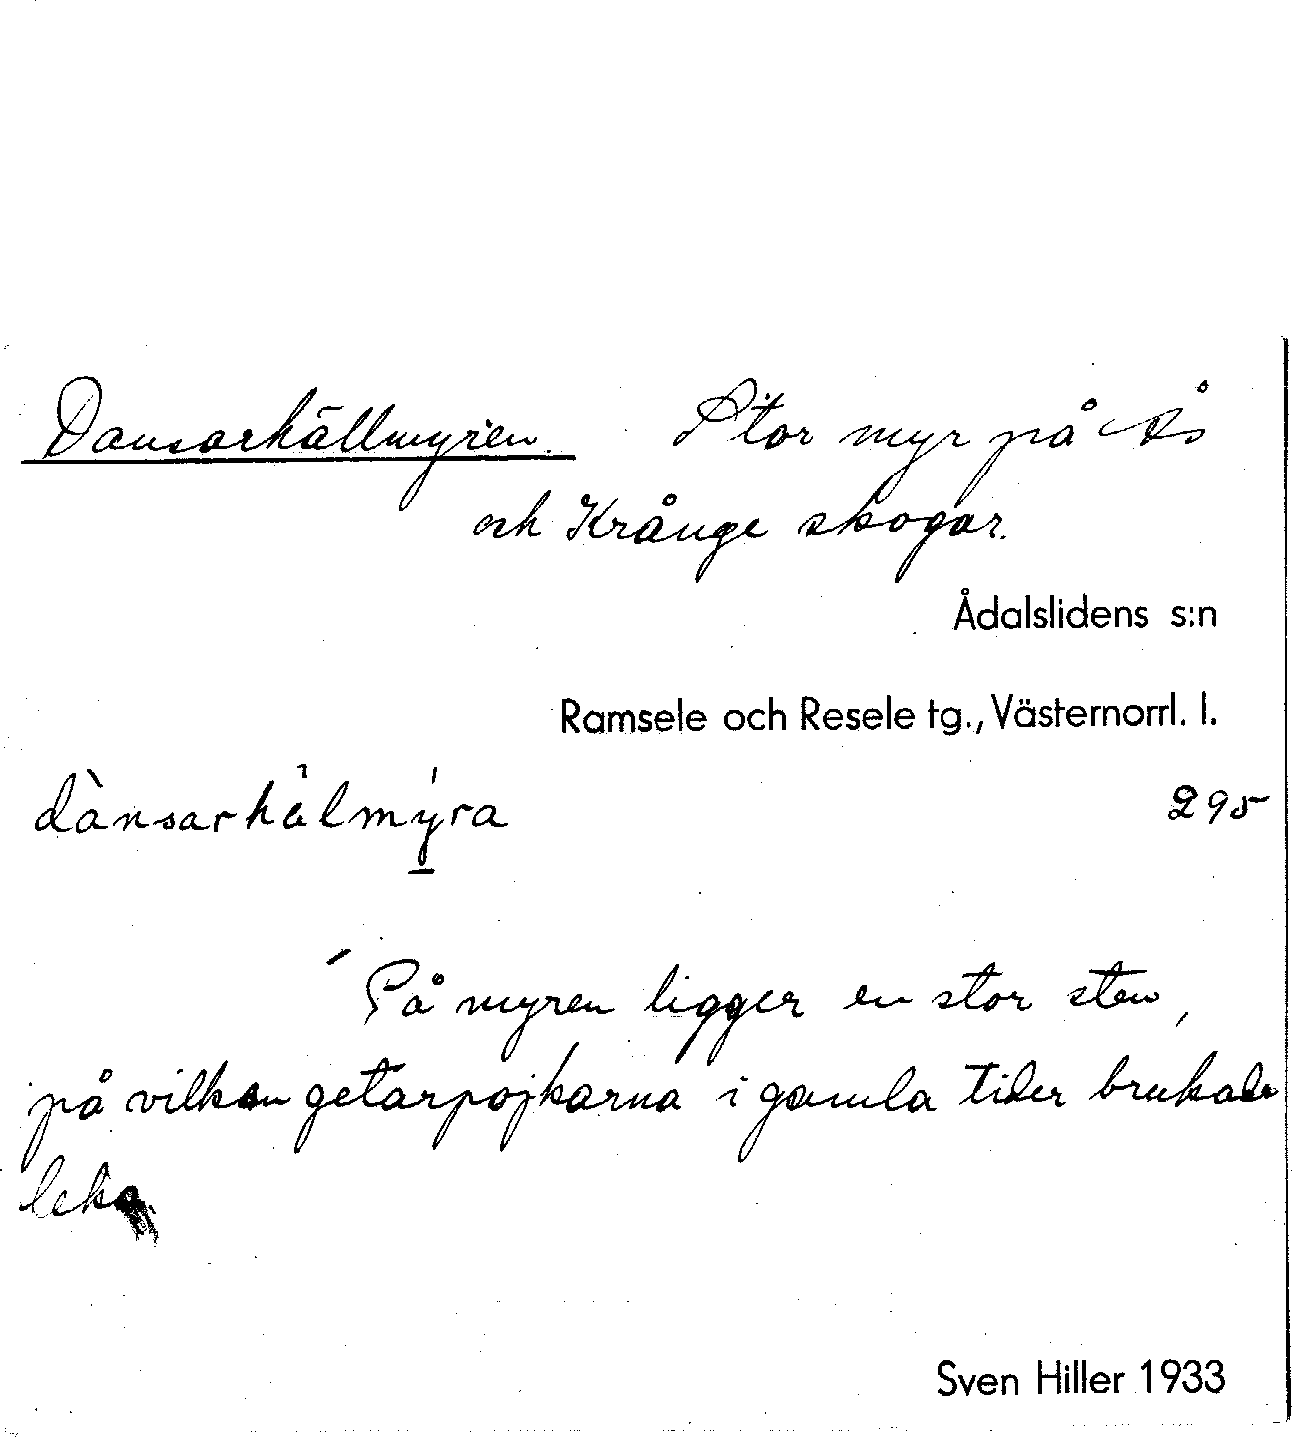 Dansarhällmyren. Stor myr på Ås
och Krånge skogar.
Ådalslidens s:n
Ramsele och Resele tg., Västernorrl. l.
dànsarhälmýra 295
På myren ligger en stor sten,
på vilken getarpojkarna i gamla tider brukade
leka.
Sven Hiller 1933